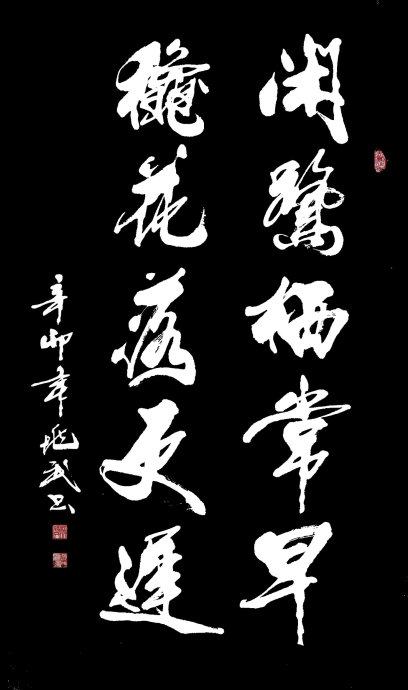 闲鹭栖常早
龝花落更遲
辛卯年武书